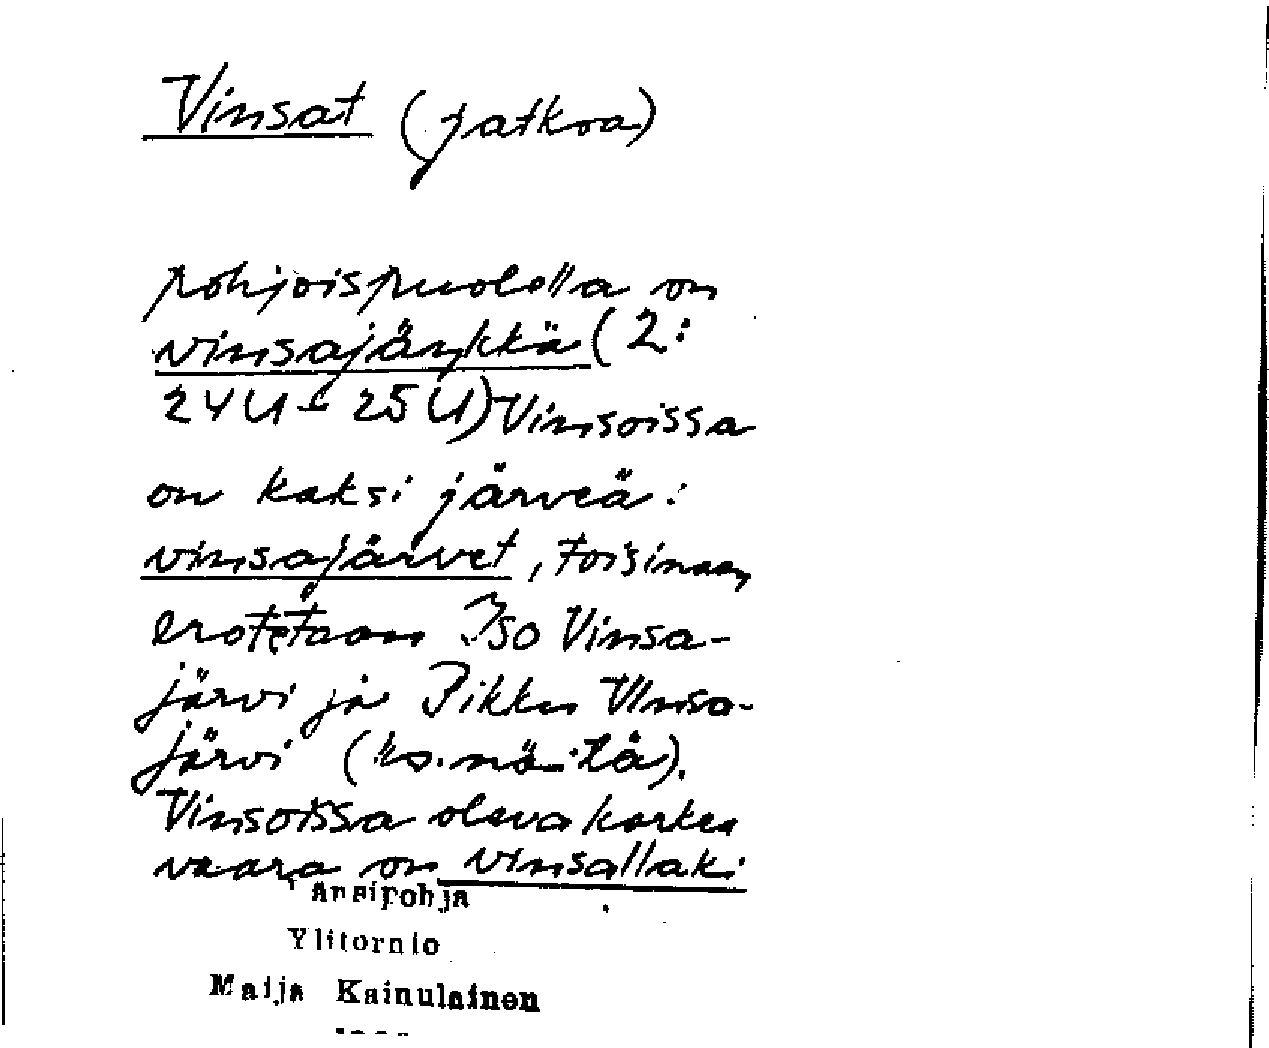 Vinsat (jatkoa)
pohjoispuolella on
vinsajänkkä (2:
24U - 25U) Vinsoissa
on kaksi järveä:
vinsajärvet, toisinaan
erotetaan Iso Vinsa-
järvi ja Pikku Vinsa-
järvi (ks. nä itä).
Vinsoissa oleva korkea
vaara on vinsallaki
Länsipohja
Ylitornio
Maija Kainulainen